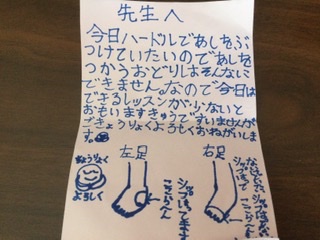 先生へ
今日ハードルであしをぶ
つけていたいのであしを
つかうおどりはそんなに
できません。なので今日は
できるレッスンが少ないと
おもいますきゅうですいませんが
ごきょうりょくよろしくおねがいしま
す。
きょうりょく
よろしく
左足
シップ
はってます
ここらへん
右足
シップはない
ここらへん